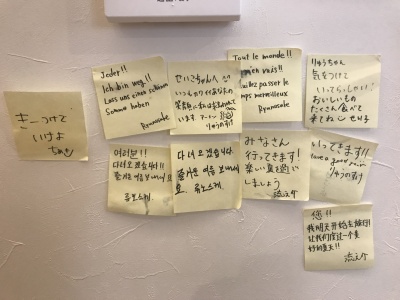 きーつけて
いけよ
Jeder!!
Ich bin weg!!
Lass uns einen schönen
Sommer haben
Ryunosuke
せいこちゃんへ
いつものりのあなたの
笑顔に
います
りゅうのすけ
Tout le monde!!
vais!!
passer le
temps merveilleux
Ryunosuke
りゅうちゃん
気をつけて
いってらっしゃい!
おいしいもの
たくさん食べて
来てね
せい子
여러분!!
다녀오겠습니다!!
즐거운 여름 보내세요
류노스케.
다녀오겠습니다.
즐거운 여름 보내세
요. 류노스케.
みなさん
行ってきます!
楽しい夏を過ご
しましょう
流之介
いってきます!!
Have a good
りゅうのすけ
您!!
我明天开始去旅行!
让我们度过一个美
好的夏天!!
流之介